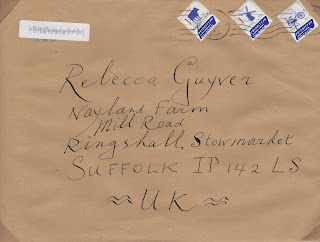 Rebecca Guyver
Nayland Farm
Mill Road
Ringshall, Stowmarket
SUFFOLK IP142LS
UK